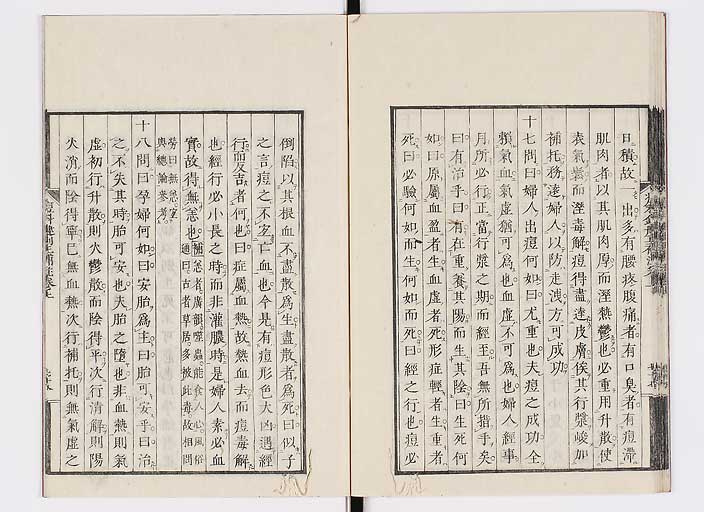 日積故一出多有腰疼腹痛者有口臭者有痘滯
肌肉者以其肌肉厚而溼熱鬱也必重用升散使
表氣鬆而溼毒解痘得盡達皮膚俟其行漿峻加
補托務達婦人以防走洩方可成功
十七問曰婦人出痘何如曰尤重也夫痘之成功全
賴氣血氣虛猶可爲也血虛不可爲也婦人經事
月所必行正當行漿之期而經至吾無所措手矣
曰有治乎曰有在重養其陽而生其陰曰生死何
如曰原屬血盈者生血虛者死形症輕者生重者
死曰必驗何如而生何如而死曰經之行也痘必
倒陷以其根血不盡散爲生盡散者爲死曰似子
之言痘之不宜亡血也今見有痘形色大凶遇經
行而反吉者何也曰症屬血熱故熱血去而痘毒解
也經行必小長之時而非灌膿時是婦人素必血
實故得無恙也
恙者廣韻噬蟲能食人心風俗
通曰古者草居多被此毒故相問
勞曰無恙
與總論參考
十八問曰孕婦何如曰安胎爲主曰胎可安乎曰治
之不失其時胎可安也夫胎之墮也非血熱則氣
虛初行升散則火鬱散而陰得平次行清解則陽
火消而陰得寧已無血熱次行補托則無氣虛之